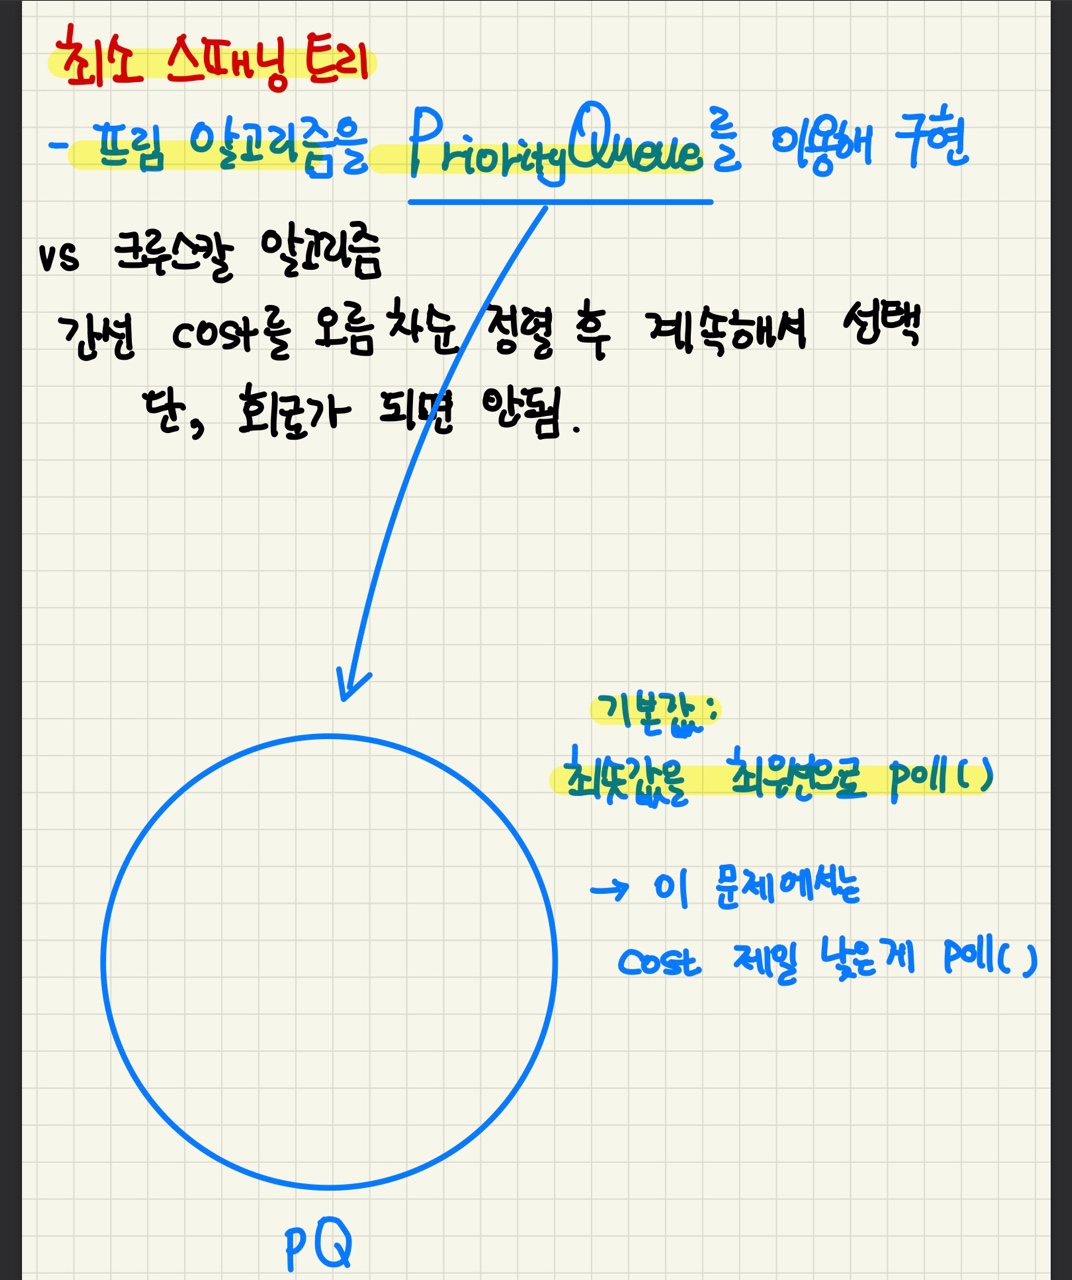 최소 스패닝 트리
- 프림 알고리즘을 PriorityQueue를 이용해 구현
vs 크루스칼 알고리즘
간선 cost를 오름차순 정렬 후 계속해서 선택
단, 회로가 되면 안됨.
기본값:
최솟값을 최우선으로 poll()
→ 이 문제에서는
cost 제일 낮은게 poll()
PQ